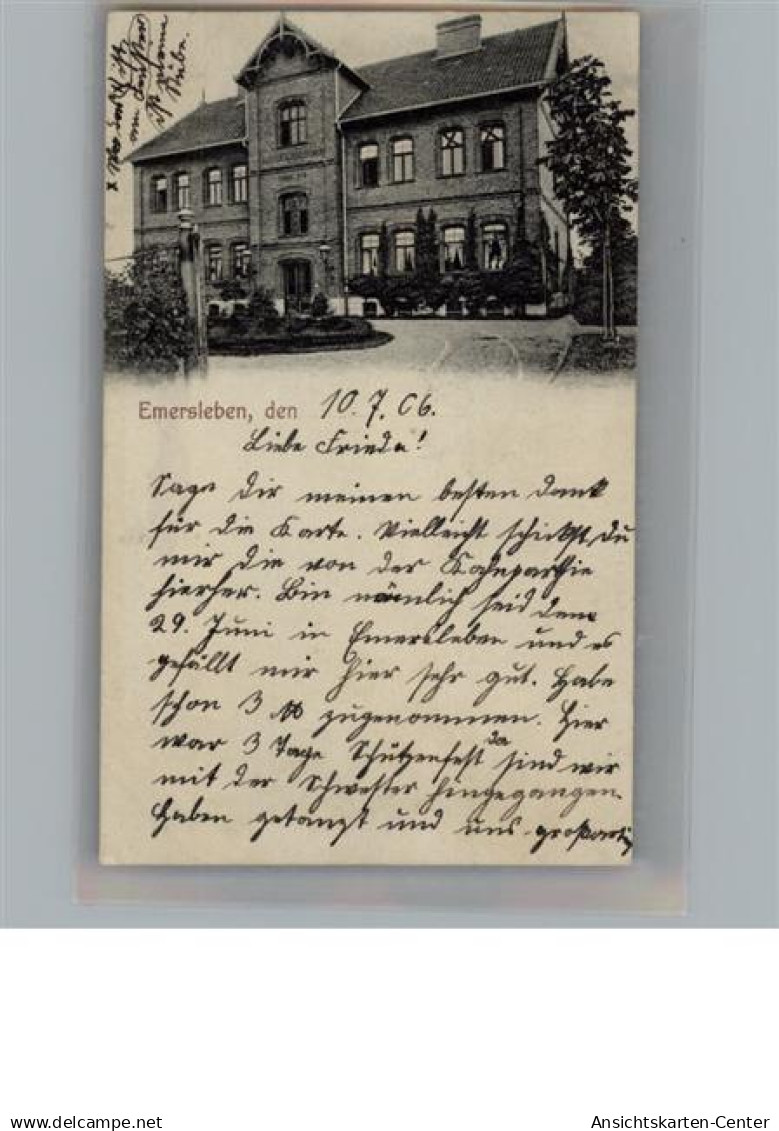 x Wo das X ist
am Fenster
ist meine
Stube.
Emersleben, den 10. 7. 06.
Liebe Frieda!
Sage dir meinen besten Dank
für die Karte. Vielleicht schickst du
mir die von der Kahnparthie
hierher. Bin nämlich seid dem
29. Juni in Emersleben und es
gefällt mir hier sehr gut. Habe
schon 3 M zugenommen. Hier
war 3 Tage Schützenfest da sind wir
mit der Schwester hingegangen.
Haben getanzt und uns großartig
delcampe.net
Ansichtskarten-Center